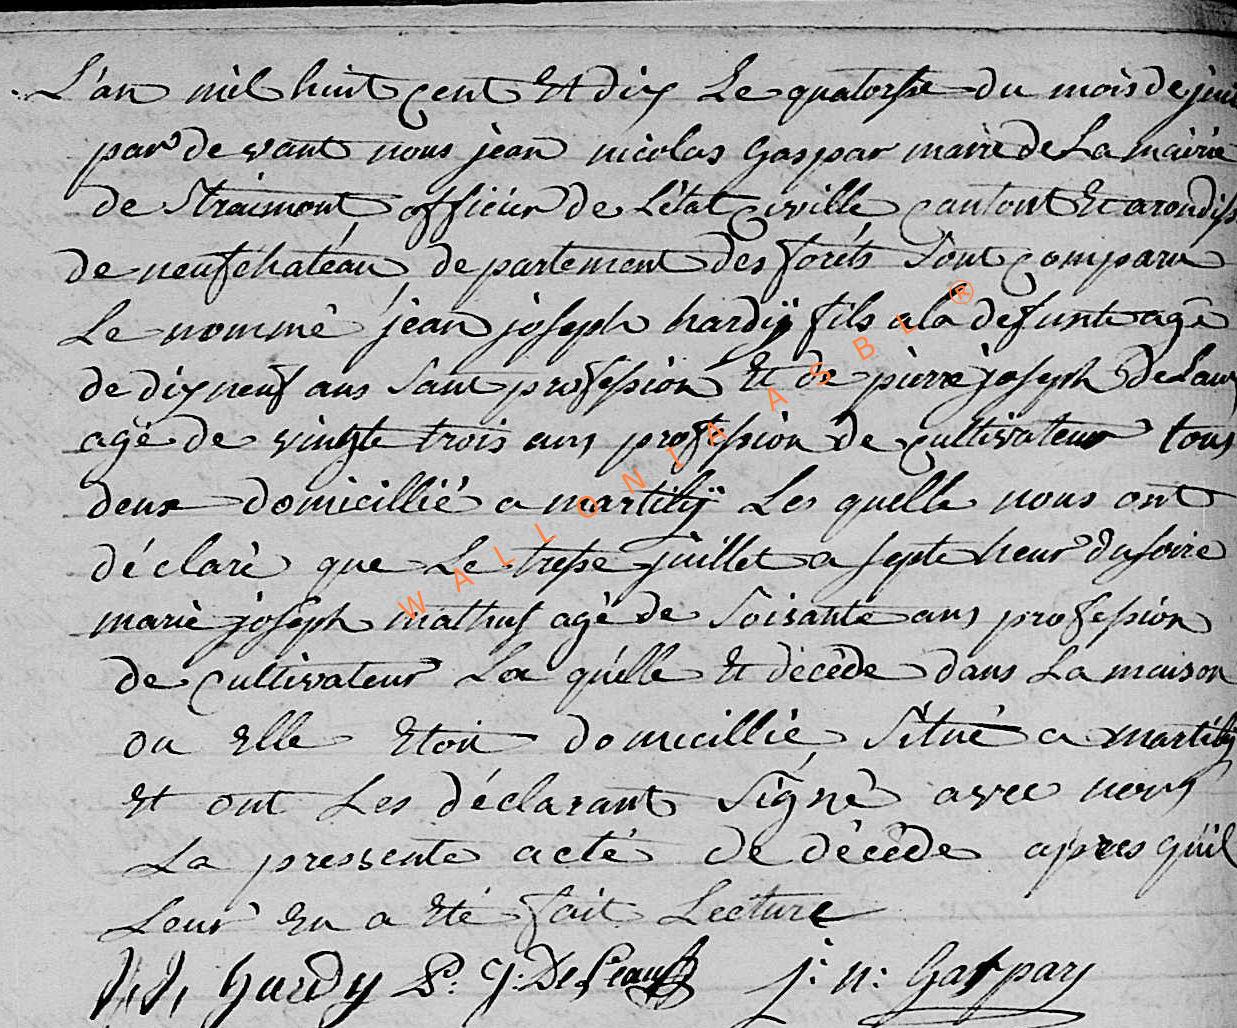 L'an mil huit cent Et dix Le quatorse du mois de juil
par de vant nous jean nicolas Gaspar maire de La mairie
de Straimont officier de L'état civille cantont Et arondiss
de neufchatéau departement des forêts Sont comparu
Le nommé jean joseph hardÿ fils a la defunte agé
de dix neuf ans Sant profession Et de pierre joseph
agé de vingte trois ans profession de cultivateur tous
deux domicillié a martilÿ Les quelle nous ont
déclaré que Le trese juillet a septe heur du soire
marie joseph mathus agé de Soisante ans profession
de cultivateur La quelle Et décède dans La maison
ou Elle Etoit domicillié Situé a martilÿ
Et ont Les déclarant Signé avec nous
La pressente acté de décède apres quil
Leur En a Eté fait Lecture
J. J. hardy P. J. j: n: Gaspar
WALLONIA ASBL ®